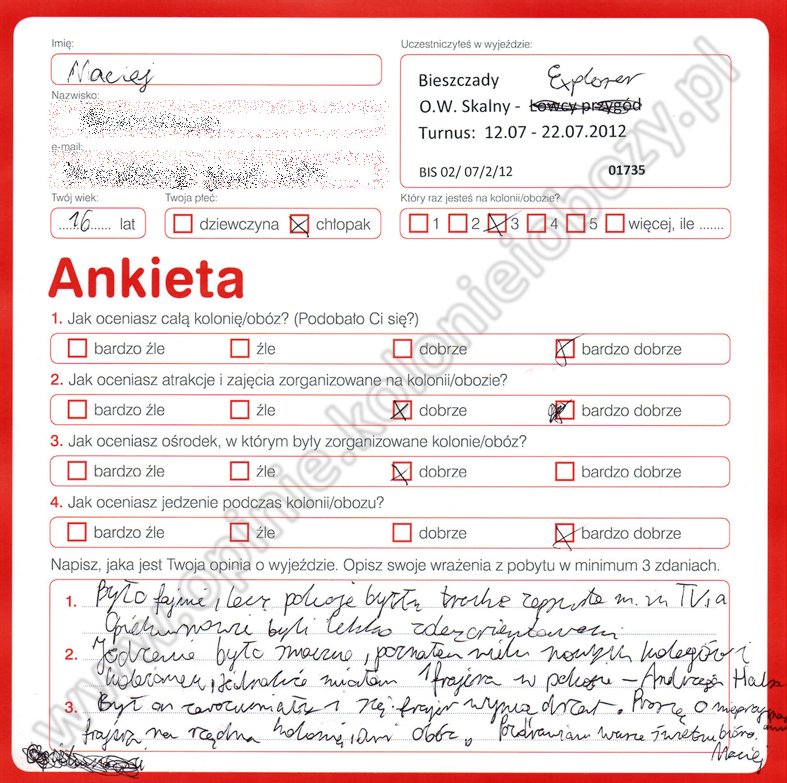 Imię:
Maciej
Nazwisko:
e-mail:
Twój wiek:
16 lat
Twoja płeć:
dziewczyna chłopak
Uczestniczyłeś w wyjeździe:
Bieszczady Explorer
O.W. Skalny - Łowcy przygód
Turnus: 12.07 - 22.07.2012
BIS 02/ 07/2/12 01735
Który raz jesteś na kolonii/obozie?
1 2 3 4 5 więcej, ile .......
Ankieta
1. Jak oceniasz całą kolonię/obóz? (Podobało Ci się?)
bardzo źle źle dobrze bardzo dobrze
2. Jak oceniasz atrakcje i zajęcia zorganizowane na kolonii/obozie?
bardzo źle źle dobrze bardzo dobrze
3. Jak oceniasz ośrodek, w którym były zorganizowane kolonie/obóz?
bardzo źle źle dobrze bardzo dobrze
4. Jak oceniasz jedzenie podczas kolonii/obozu?
bardzo źle źle dobrze bardzo dobrze
Napisz, jaka jest Twoja opinia o wyjeździe. Opisz swoje wrażenia z pobytu w minimum 3 zdaniach.
1. Było fajnie, lecz pokoje były trochę zepsute m.in TV, a
Opiekunowie byli lekko zdezorientowani
2. Jedzenie było smaczne, poznałem wielu nowych kolegów i
koleżanek, jednakże miałem 1 frajera w pokoju - Andrzeja
3. Był on zarozumiały i się frajer wymądrzał. Proszę o
frajera na żadną kolonię, ani obóz. Pozdrawiam wasze świetne biuro.
Maciej
www.opinie.kolonieiobozy.pl